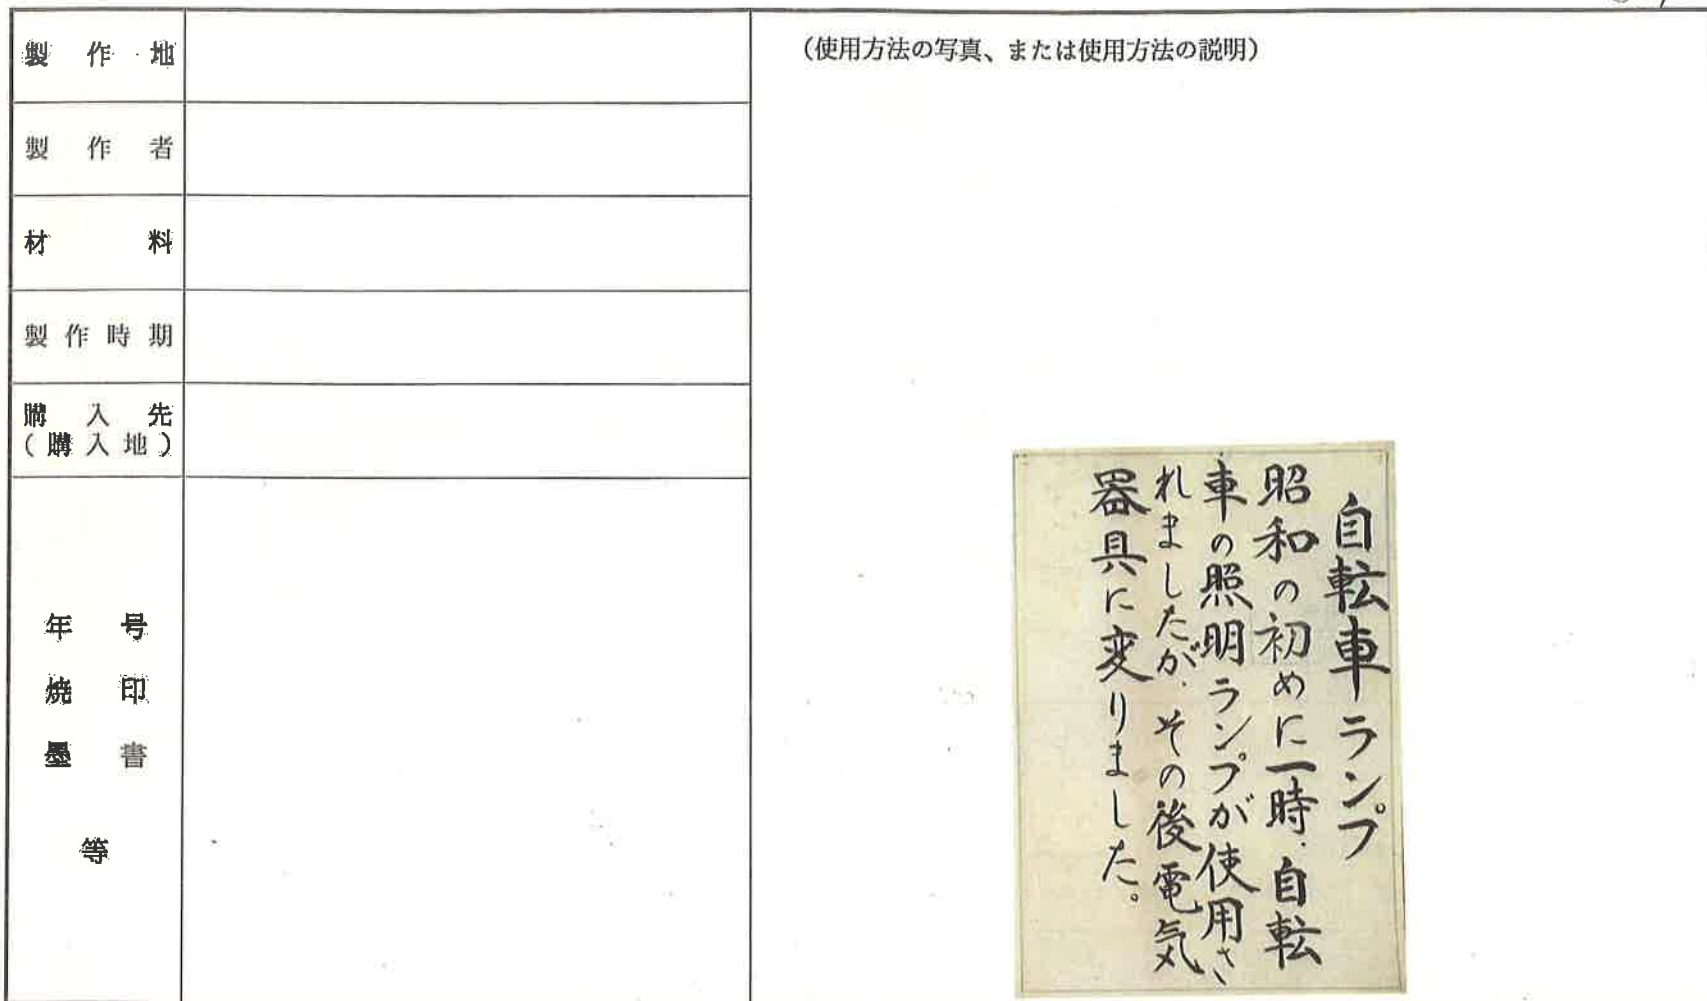 製作地
製作者
材料
製作時期
購入先
(購入地)
年号
焼印
墨書
等
(使用方法の写真、または使用方法の説明)
自転車ランプ
昭和の初めに一時、自転
車の照明ランプが使用さ
れましたが、その後電気
器具に変りました。